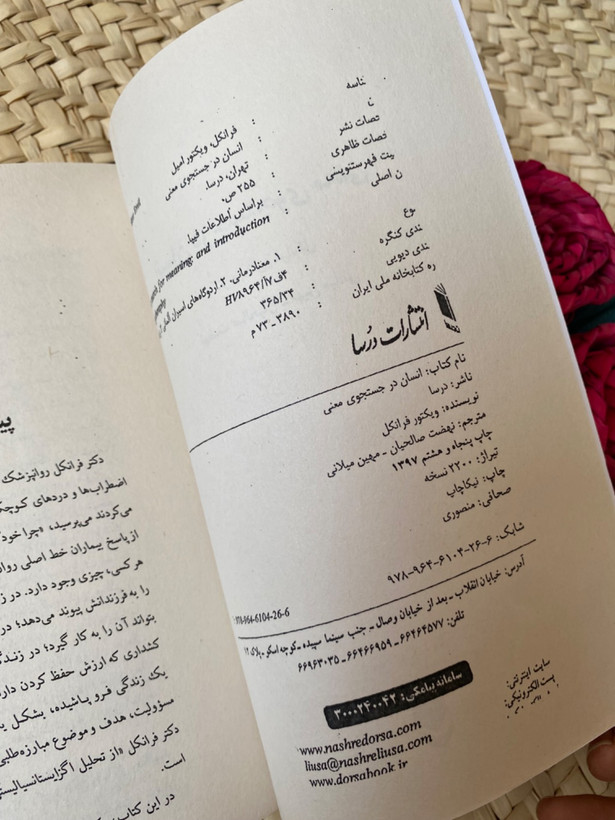 ناسه
ن : فرانکل، ویکتور امیل
صات نشر : انسان در جستجوی معنی
خصات ظاهری : تهران، درسا.
یت فهرستنویسی : ۲۵۵ ص.
ن اصلی : براساس اطلاعات فیپا.
for meaning: and introduction
وع : ۱. معنادرمانی. ۲. اردوگاه‌های اسیران
ندی کنگره : HV۸۹۶۴/آ۷ف۴
ندی دیویی : ۳۶۵/۳۴
ره کتابخانه ملی ایران : ۳۸۹۰ـ۷۳م
انتشارات دُرسا
نام کتاب: انسان در جستجوی معنی
ناشر: درسا
نویسنده: ویکتور فرانکل
مترجم: نهضت صالحیان ـ مهین میلانی
چاپ پنجاه و هشتم ۱۳۹۷
تیراژ: ۲۲۰۰ نسخه
چاپ: نیکاچاپ
صحافی: منصوری
شابک: ۶-۲۶-۶۱۰۴-۹۶۴-۹۷۸
978-964-6104-26-6
آدرس: خیابان انقلاب ـ بعد از خیابان وصال ـ جنب سینما سپیده ـ کوچه اسکو ـ پلاک ۱۲
تلفن: ۶۶۴۶۴۵۷۷ ـ ۶۶۴۶۶۹۵۹ ـ ۶۶۹۶۳۰۳۵
سامانه پیامکی: ۳۰۰۰۲۴۰۰۴۲
سایت اینترنتی: www.nashredorsa.com
پست الکترونیکی: liusa@nashreliusa.com
www.dorsabook.ir
پی
دکتر فرانکل روانپزشک
اضطراب‌ها و دردهای کوچک
می‌کردند می‌پرسید، «چرا خود
از پاسخ بیماران خط اصلی روان
هر کس، چیزی وجود دارد. در
را به فرزندانش پیوند می‌دهد؛ در
بتواند آن را به کار گیرد؛ در
کشداری که ارزش حفظ کردن دارد
یک زندگی فرو پاشیده، بشکل
مسؤولیت، هدف و موضوع مبارزه‌طلبی
دکتر فرانکل «از تحلیل اگزیستانسیالیستی
است.
در این کتاب،